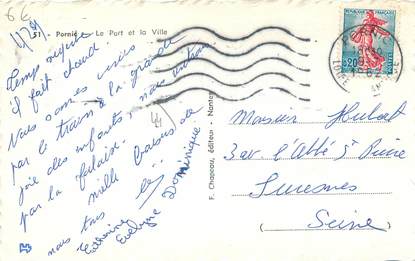 51 Pornic - Le Port et la Ville
Temps magni
il fait chaud.
Nous sommes venus
par le train à la grande
joie des enfants, nous
par la falaise.
mille baisers de
nous tous
Catherine
Evelyne Dominique
F. Chapeau, éditeur - Nantes
REPUBLIQUE FRANÇAISE
0,20
POSTES
PORNIC
1962
LOIRE
Monsieur Hubert
3 av. l'Abbé
Suresnes
(Seine)